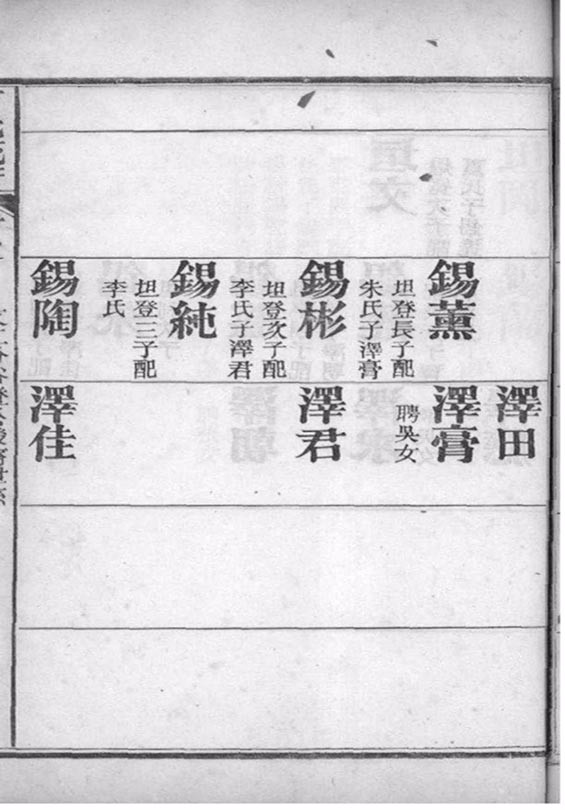 錫薰
坦登長子配
朱氏子澤膏
錫彬
坦登次子配
李氏子澤君
錫純
坦登三子配
李氏
錫陶
澤田
澤膏
聘吳女
澤君
澤佳